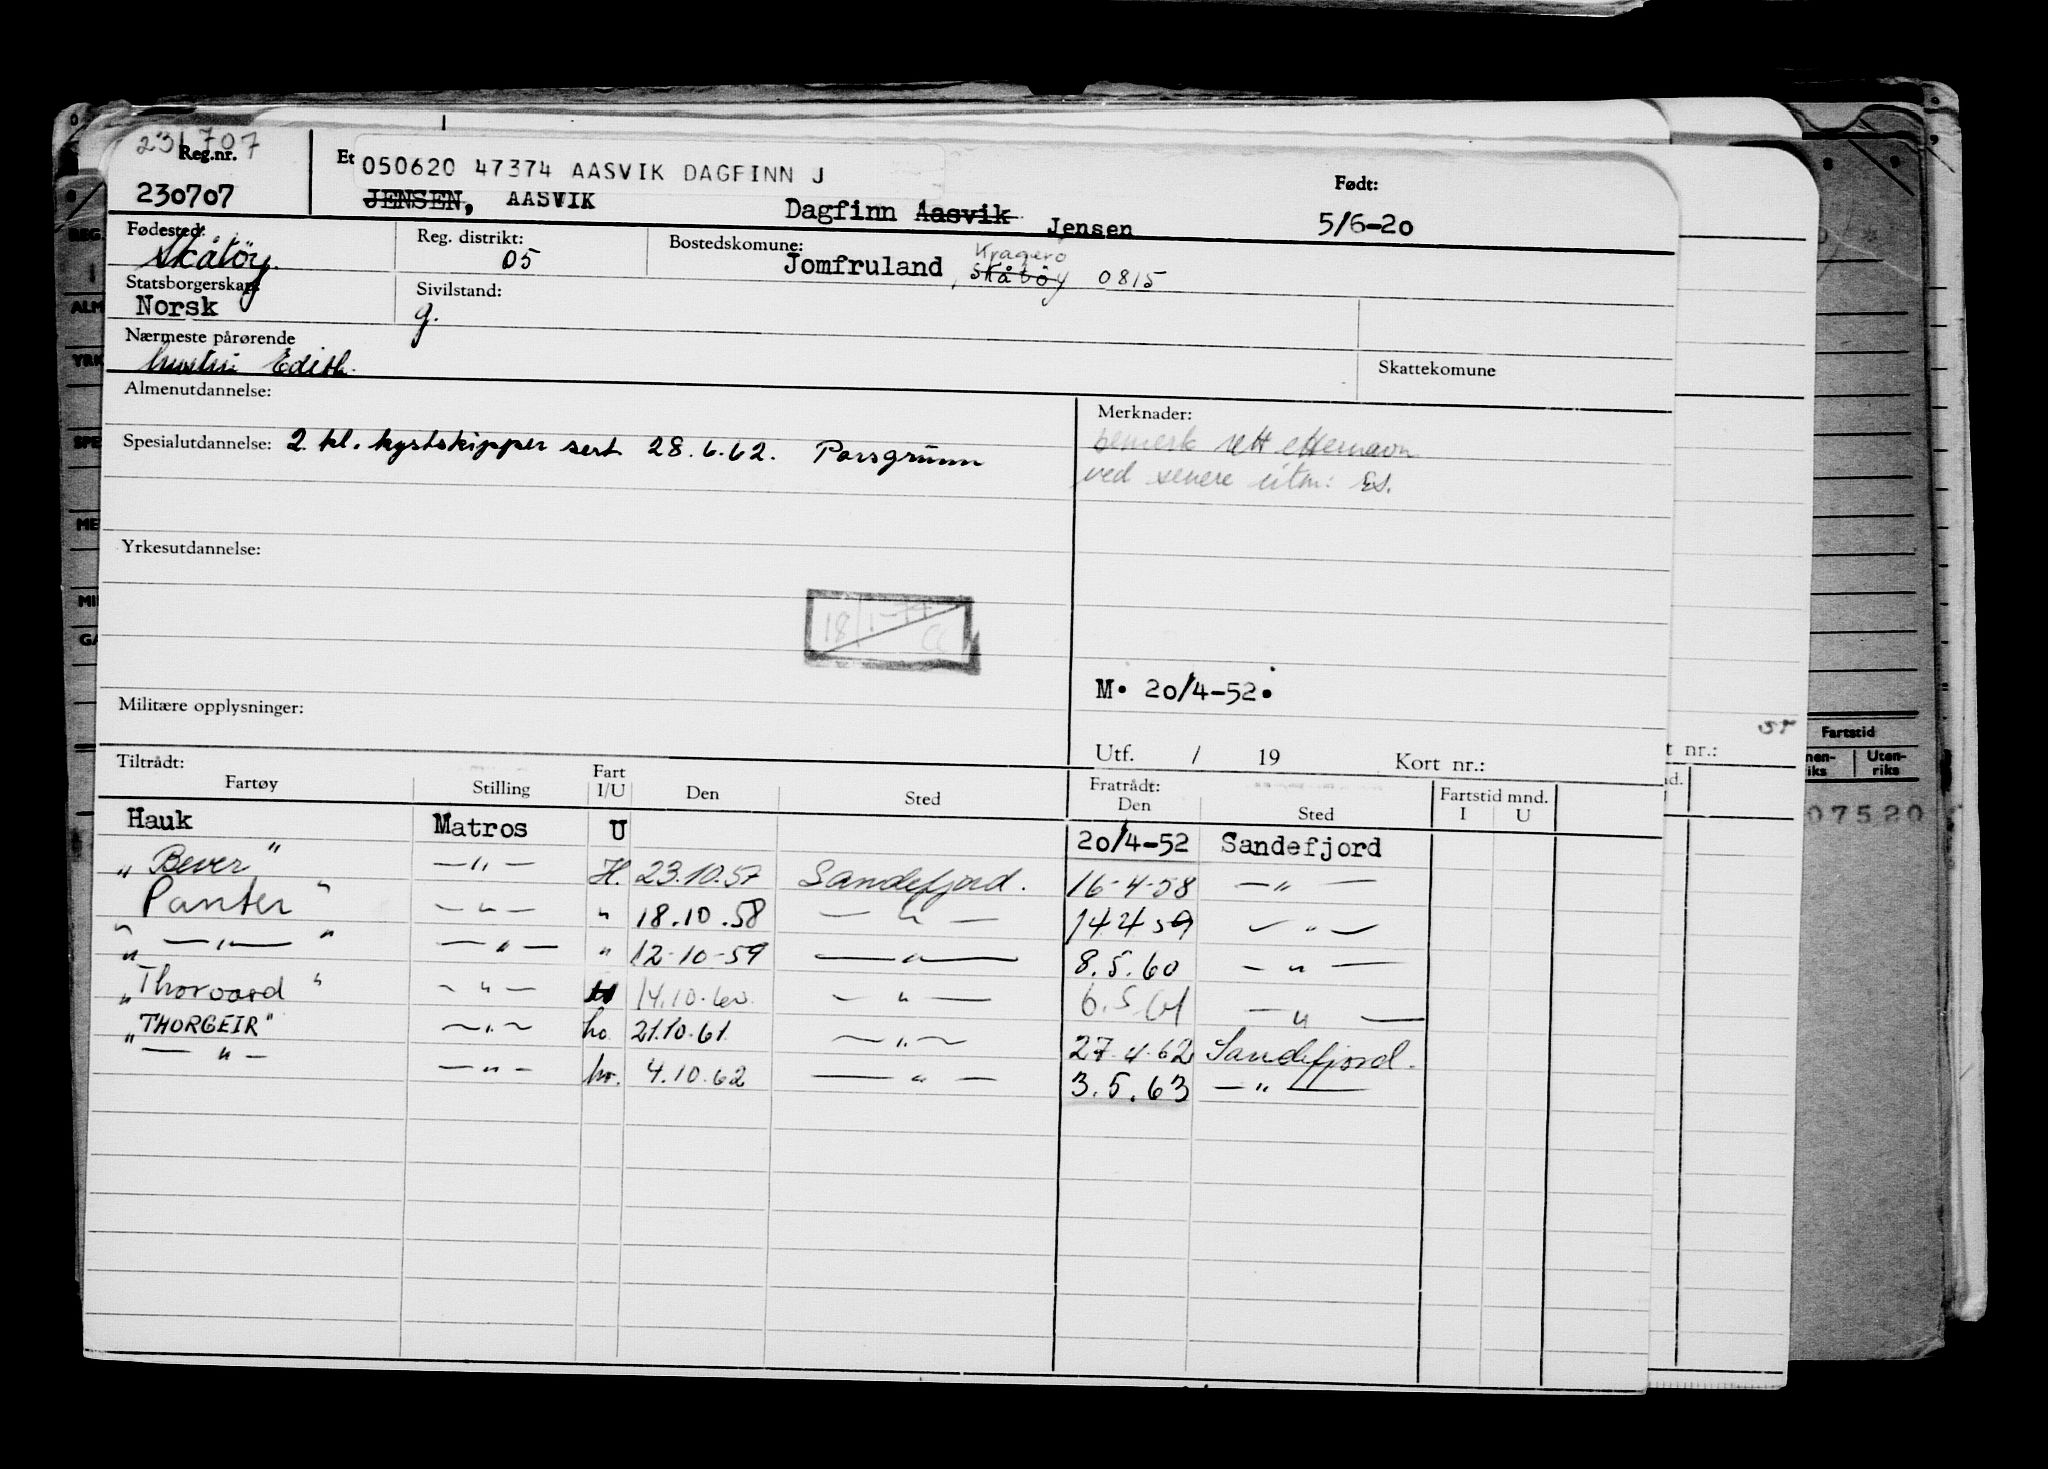 231707
Reg.nr.
230707
Et
050620 47374 AASVIK DAGFINN J
JENSEN, AASVIK
Dagfinn Aasvik Jensen
Født:
5/6-20
Fødested: Skåtöy.
Reg. distrikt: 05
Bostedskomune: Jomfruland, Skåtöy Kragerö 0815
Statsborgerskap: Norsk
Sivilstand: g.
Nærmeste pårørende
hustru: Edith.
Skattekomune
Almenutdannelse:
Merknader:
bemerk rett etternavn
ved senere utm: Es.
Spesialutdannelse: 2. kl. kystskipper sert 28.6.62. Porsgrunn
Yrkesutdannelse:
18/1-77
M. 20/4-52.
Militære opplysninger:
Utf. / 19 Kort nr.:
Tiltrådt:
Fartøy Stilling Fart I/U Den Sted Fratrådt: Den Sted Fartstid mnd. I U
Hauk Matros U 20/4-52 Sandefjord
"Bever" —"— H. 23.10.57 Sandefjord. 16-4-58 —"—
Panter" —"— " 18.10.58 —"— 14 4 59 —"—
"—"—" —"— " 12-10-59 —"— 8.5.60 —"—
"Thorvard" —"— 14.10.60. —"— 6.5.61 —"—
"THORGEIR" —"— hv. 21.10.61 —"— 27.4.62 Sandefjord.
"—"— —"— hv. 4.10.62 —"— 3.5.63 —"—
REG.
ALM
YRK
SPE
ME
MI
GA
8 9
37
t nr.:
nd.
Fartstid
nen-
iks
Uten-
riks
07520